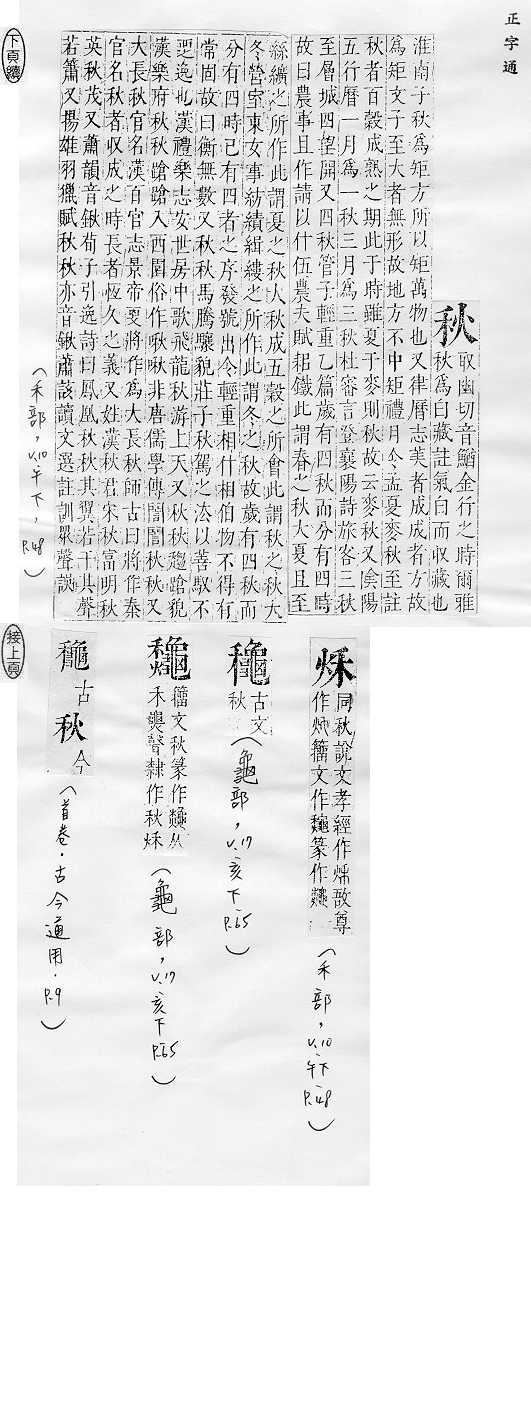 正字通
秋
取幽切音鰌金行之時爾雅
秋為白藏註氣白而収藏也
淮南子秋為矩矩方所以矩萬物也又律曆志芙者成成者方故
為矩文子至大者無形故地方不中矩禮月令孟夏麥秋至註
秋者百穀成熟之期此于時雖夏于麥則秋故云麥秋又陰陽
五行曆一月為一秋三月為三秋杜審言登襄陽詩旅客三秋
至層城四望開又四秋管子輕重乙篇歲有四秋而分有四時
故曰農事且作請以什伍農夫賦耜鐵此謂春之秋大夏且至
絲纊之所作此謂夏之秋大秋成五穀之所會此謂秋之秋大
冬營室東女事紡績緝縷之所作此謂冬之秋故歲有四秋而
分有四時已有四者之序發號出令輕重相什相伯物不得有
常固故曰衡無數又秋秋馬騰驤貌莊子秋駕之法以善馭不
逸也漢禮樂志安世房中歌飛龍秋游上天又秋秋蹌貌
漢樂府秋秋蹌蹌入西園俗作啾啾非唐儒學傳誾誾秋秋又
大長秋官名漢百官志景帝更將作為大長秋師古曰將作秦
官名秋者収成之時長者恆久之義又姓漢秋君宋秋富明秋
英秋茂又蕭韻音鍬荀子引逸詩曰鳳凰秋秋其翼若干其聲
若簫又揚雄羽獵賦秋秋亦音鍬蕭該讀文選註訓眾聲誤
(禾部,v.10午下,P.48)
下頁續
接上頁
秌
同秋說文孝經作秌故尊
作秌籀文作𪛁篆作
(禾部,v.10午下P.48)
龝
古文
秋
(龜部,v.17亥下P.65)
籀文秋篆作从
禾聲隸作秋秌
(龜部,v.17亥下P.65)
龝古秋今
(首卷.古今通用.P.9)